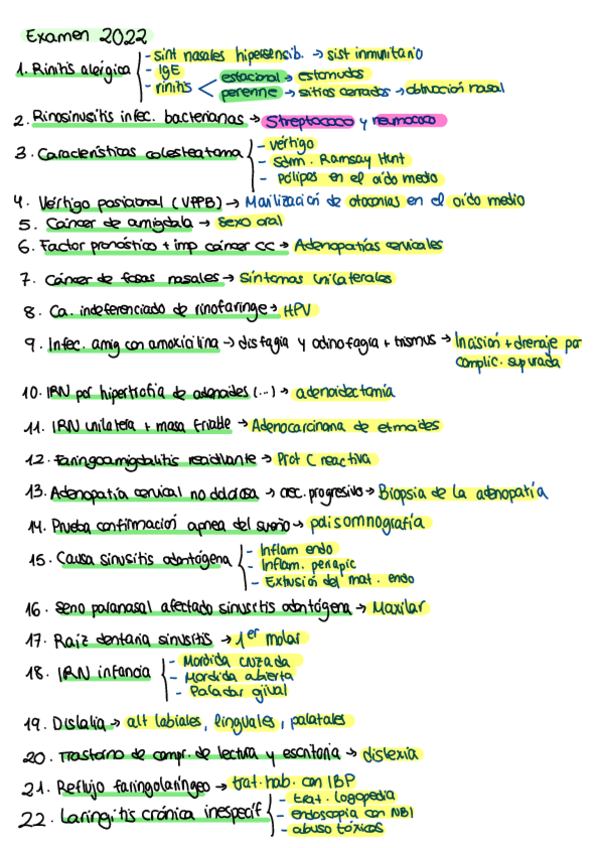 Examen 2022
- sint nasales hipersensib. → sist inmunitario
1. Rinitis alérgica - IgE
- rinitis < estacional → estornudos
perenne → sitios cerrados → obtrucción nasal
2. Rinosinusitis infec. bacterianas → Streptococo y neumococo
- vértigo
3. Características colesteatoma - Sdrm. Ramsay Hunt
- Pólipos en el oído medio
4. Vértigo posicional (VPPB) → Movilización de otoconias en el oído medio
5. Cáncer de amígdala → sexo oral
6. Factor pronóstico + imp cáncer CC → Adenopatías cervicales
7. Cáncer de fosas nasales → Síntomas unilaterales
8. Ca. indeferenciado de rinofaringe → HPV
9. Infec. amig con amoxicilina → disfagia y odinofagia + trismus → Incisión + drenaje por
complic. supurada
10. IRN por hipertrofia de adenoides (...) → adenoidectomía
11. IRN unilateral + masa friable → Adenocarcinoma de etmoides
12. Faringoamigdalitis recidivante → Prot C reactiva
13. Adenopatía cervical no dolorosa → crec. progresivo → Biopsia de la adenopatía
14. Prueba confirmación apnea del sueño → polisomnografía
- Inflam endo
15. Causa sinusitis odontógena - Inflam. periapic
- Extrusión del mat. endo
16. Seno paranasal afectado sinusitis odontógena → Maxilar
17. Raíz dentaria sinusitis → 1er molar
- Mordida cruzada
18. IRN infancia - Mordida abierta
- Paladar ojival
19. Dislalia → alt labiales, linguales, palatales
20. Trastorno de compr. de lectura y escritoria → dislexia
21. Reflujo faringolaríngeo → trat. hab. con IBP
- trat. logopedia
22. Laringitis crónica inespecíf - endoscopia con NBI
- abuso tóxicos